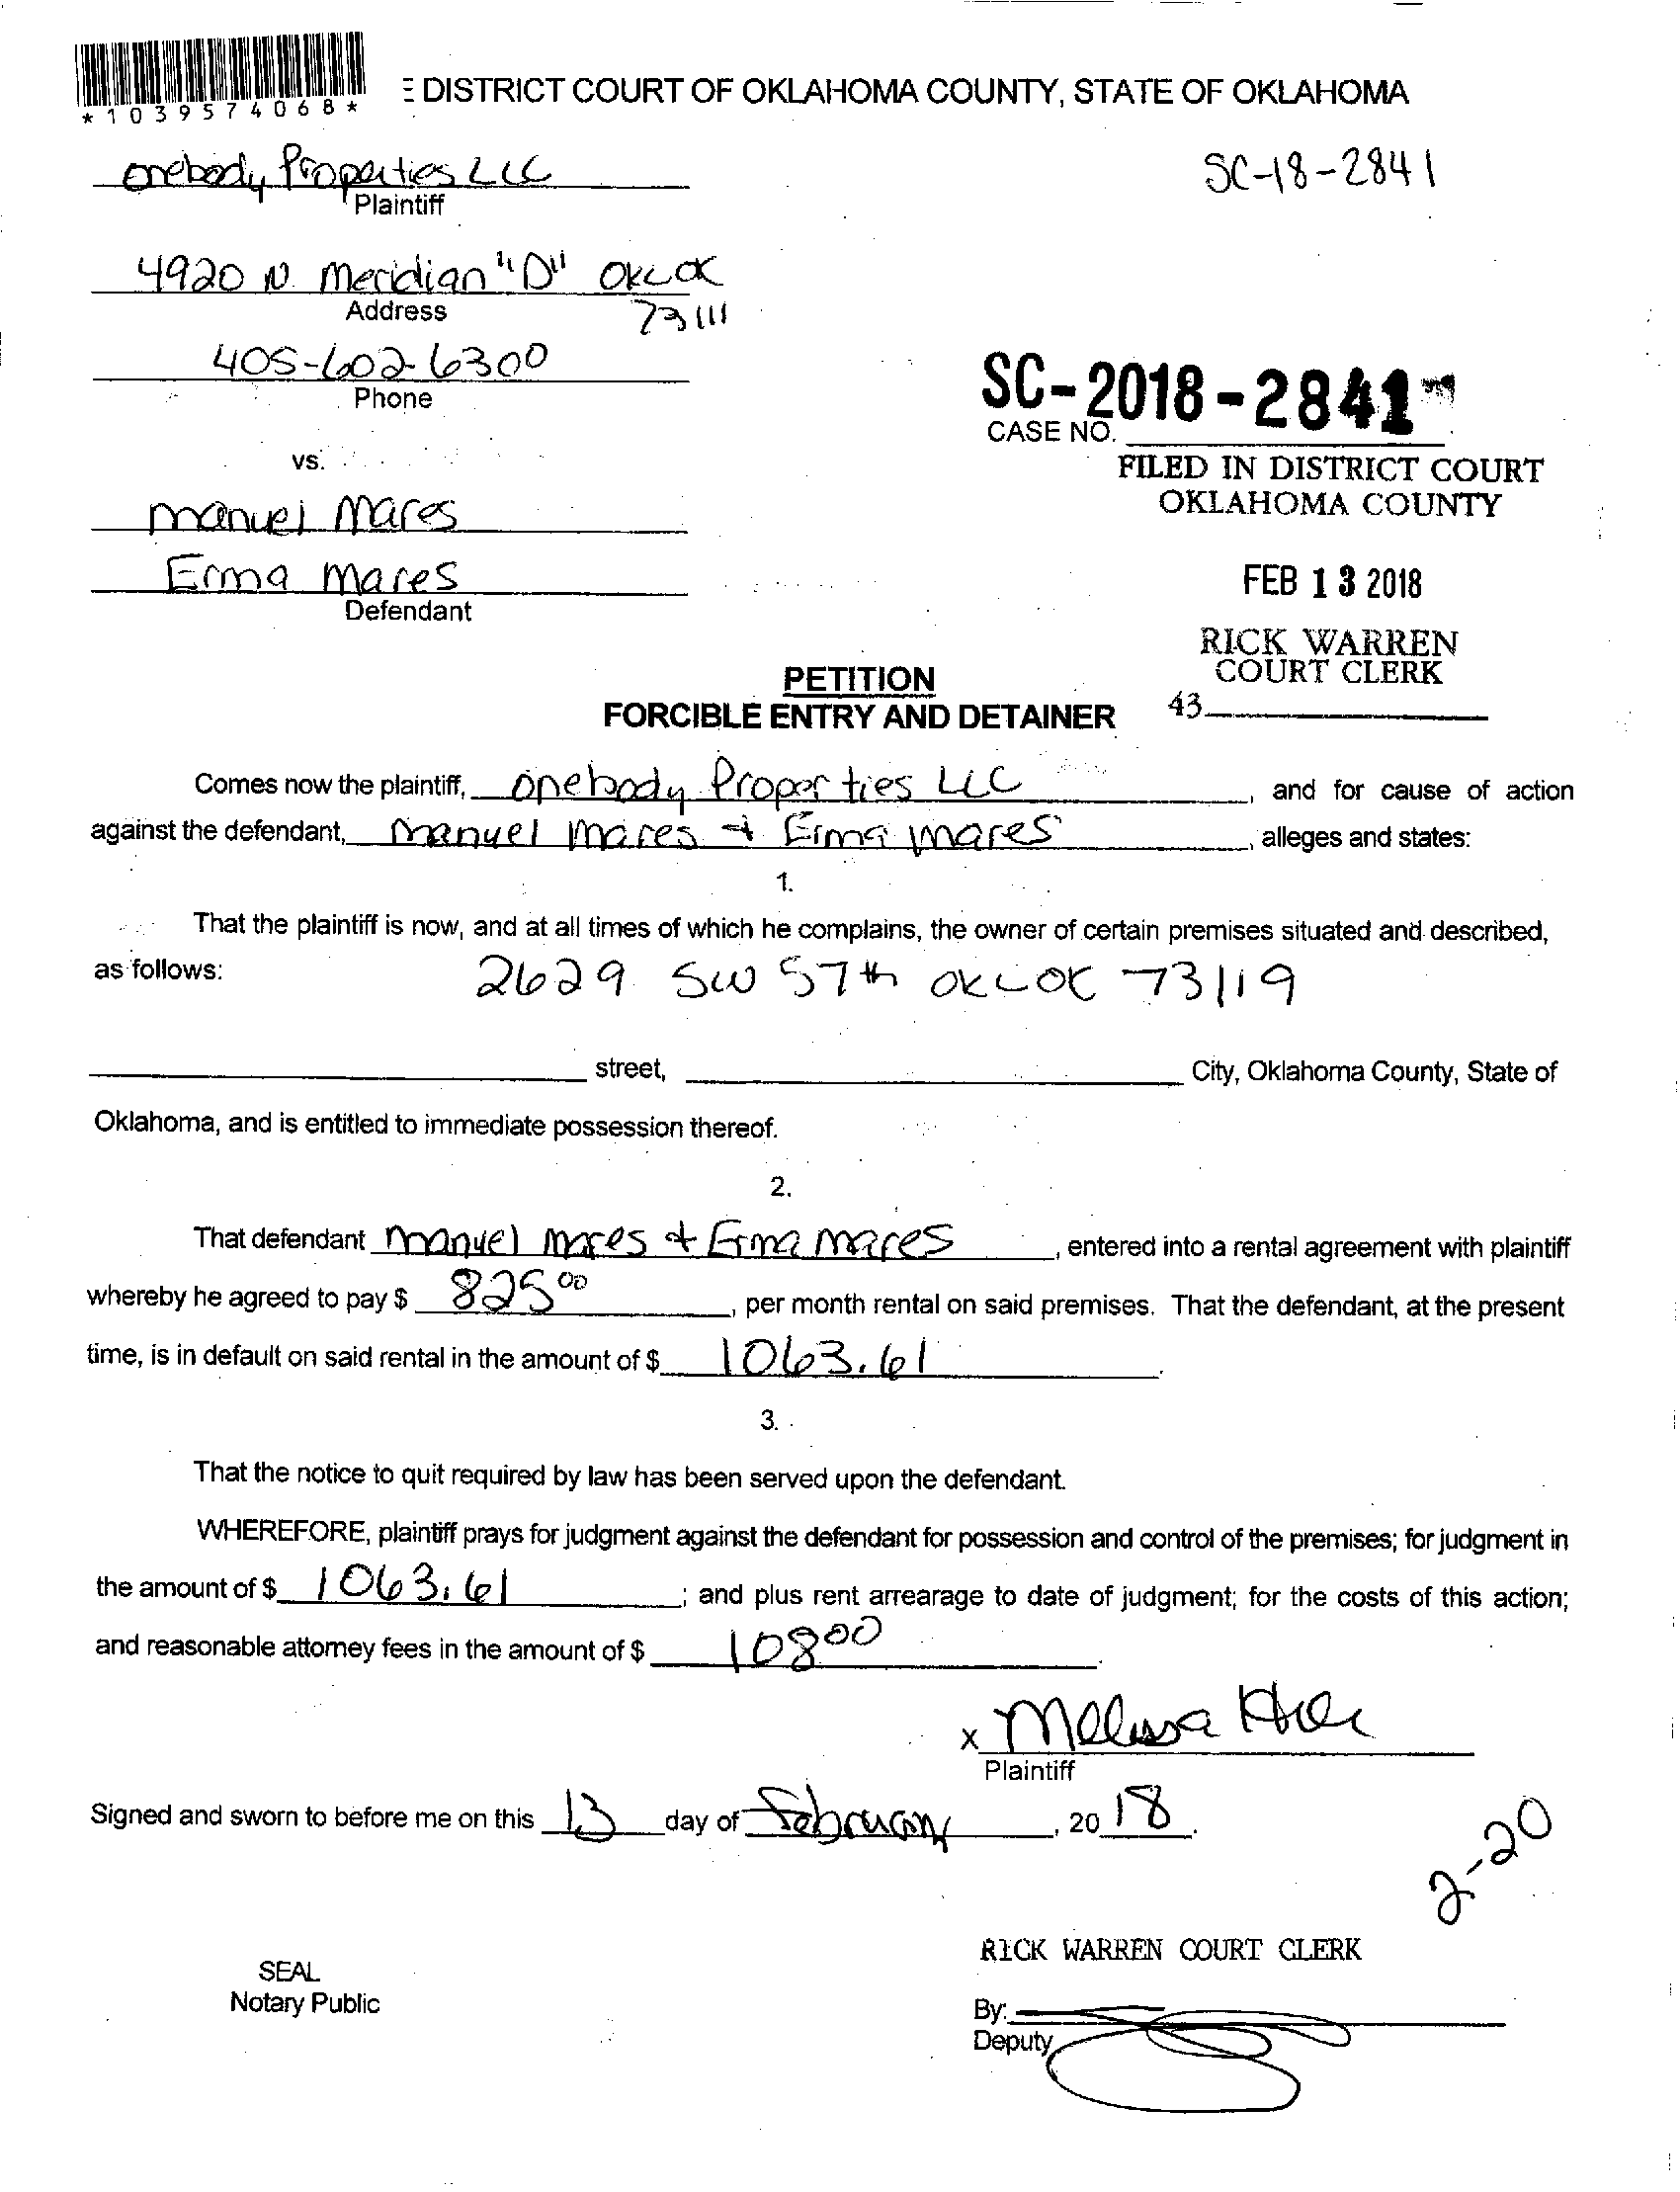 *1039574068*
E DISTRICT COURT OF OKLAHOMA COUNTY, STATE OF OKLAHOMA
onebody Properties LLC
SC-18-2841
Plaintiff
4920 N. Meridian "D" OKC OK
Address 73111
405-602-6300
Phone
SC-2018-2841
CASE NO.
vs.
FILED IN DISTRICT COURT
OKLAHOMA COUNTY
manuel Mares
Erma Mares
FEB 13 2018
Defendant
RICK WARREN
COURT CLERK
PETITION
43
FORCIBLE ENTRY AND DETAINER
Comes now the plaintiff, Onebody Properties LLC, and for cause of action
against the defendant, Manuel Mares + Erma Mares, alleges and states:
1.
That the plaintiff is now, and at all times of which he complains, the owner of certain premises situated and described,
as follows: 2629 SW 57th OKC OK 73119
street, City, Oklahoma County, State of
Oklahoma, and is entitled to immediate possession thereof.
2.
That defendant Manuel Mares + Erma Mares, entered into a rental agreement with plaintiff
whereby he agreed to pay $ 825 00, per month rental on said premises. That the defendant, at the present
time, is in default on said rental in the amount of $ 1063.61.
3.
That the notice to quit required by law has been served upon the defendant.
WHEREFORE, plaintiff prays for judgment against the defendant for possession and control of the premises; for judgment in
the amount of $ 1063.61; and plus rent arrearage to date of judgment; for the costs of this action;
and reasonable attorney fees in the amount of $ 108 00.
x Melissa
Plaintiff
Signed and sworn to before me on this 13 day of February, 20 18.
2-20
RICK WARREN COURT CLERK
SEAL
Notary Public
By:
Deputy